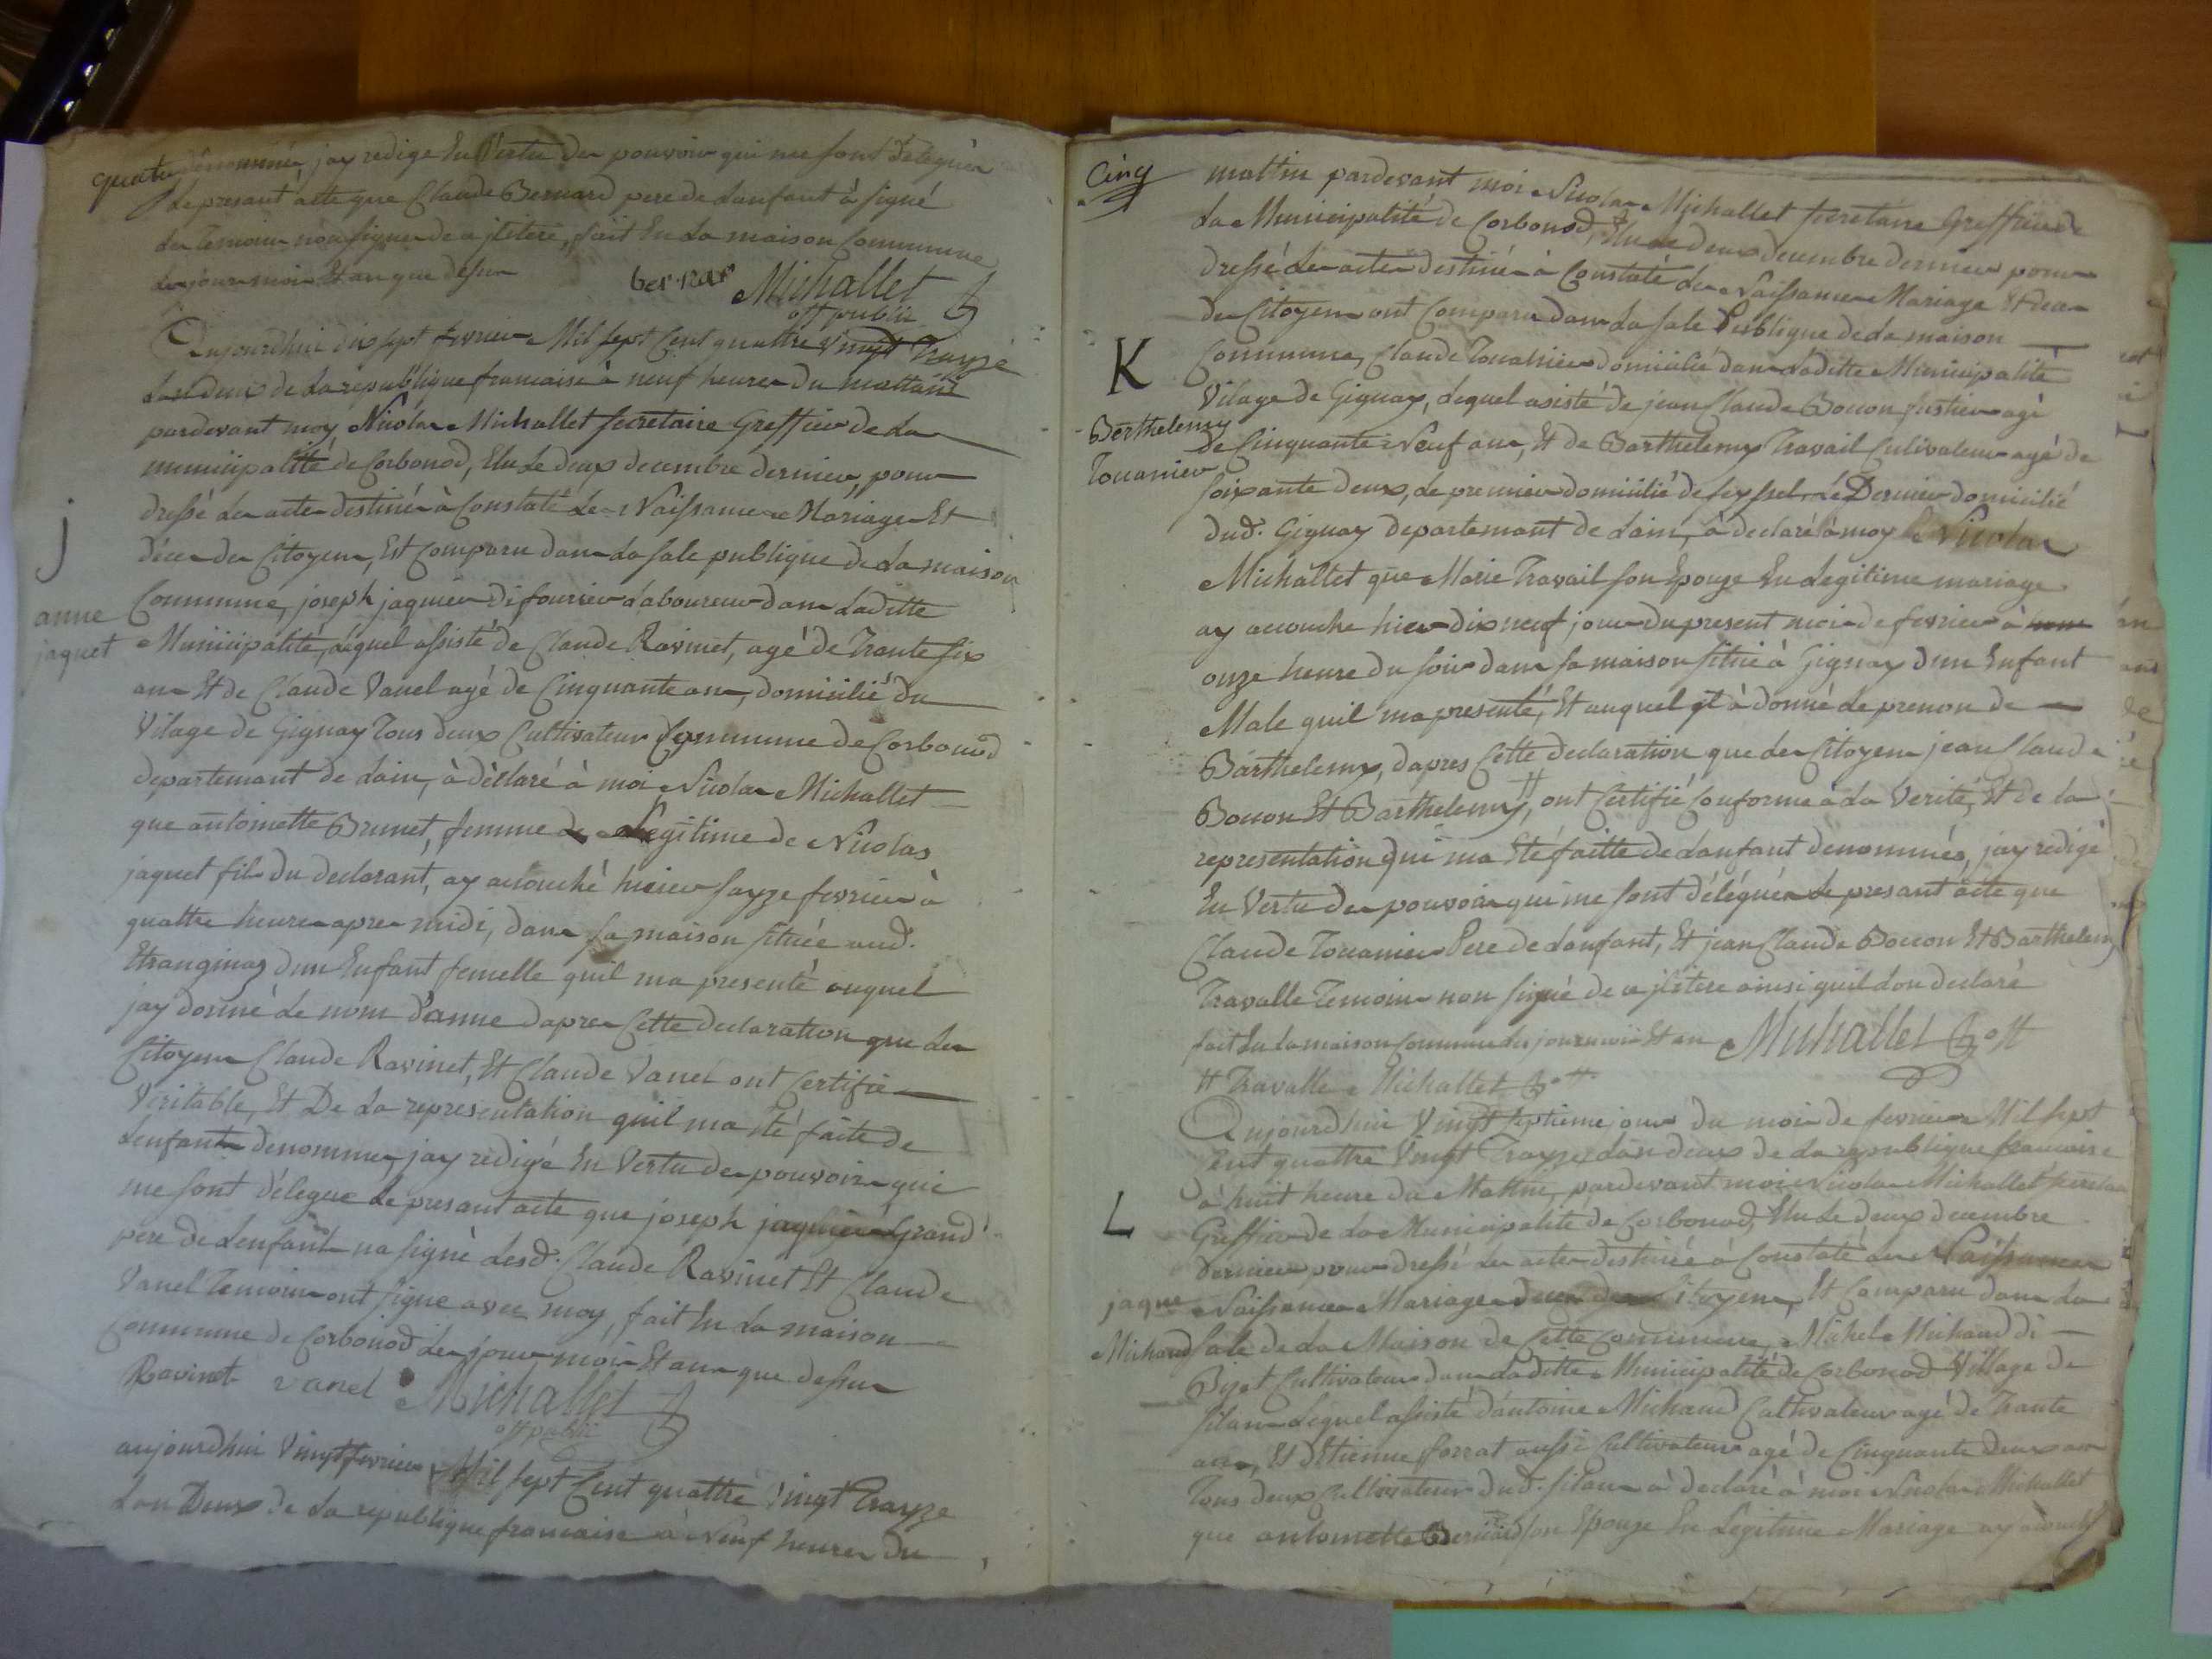 quatre
dénommé, jay redige En Vertu des pouvoir qui me sont délégués
Le presant acte que Claude Bernard pere de Lanfant à signé
Les Temoins non signer de ce jlitere, fait En La maison Commune
Les jour mois Et an que desus
ber nar Michallet
off public
Aujourdhui dix sept fevrier Mil sept Cent quattre Vingt Trayze
Lan deux de La republique francaise à neuf heures du mattant
pardevant moy Nicolas Michallet secretaire Greffier de La
municipalité de Corbonod, Elu Le deux decembre dernier, pour
dressé Les actes destinés à Constaté Les Naissances Mariages Et
déces des Citoyens, Est Comparu dans La sale publique de La maison
Commune, joseph jaquier di fourrier Laboureur dans Laditte
Municipalité, Lequel assisté de Claude Ravinet, agé de Trante six
ans Et de Claude Vanel agé de Cinquante ans, domicilié du
Vilage de Gignay Tous deux Cultivateur Commune de Corbonod
departemant de Lain, à déclaré à moi Nicolas Michallet
que antoinette Brunet, femme Legitime de Nicolas
jaquet fils du declarant, ay acouché hieier sayze fevrier à
quattre heures apres midi, dans sa maison sitüée aud.
Etranginaz dun Enfant femelle quil ma presenté auquel
jay donné Le nom danne dapres Cette declaration que Les
Citoyens Claude Ravinet, Et Claude Vanel ont Certifie
Viritable, Et De La representation quil ma Eté faite de
Lenfant denommer, jay redigé En Vertu des pouvoirs qui
me sont délegue Le presant acte que joseph jaquier Grand
pere de Lenfant na signé Lesd. Claude Ravinet Et Claude
Vanel Temoins ont signe avec moy, fait En La maison
Commune de Corbonod Les jour mois Et ans que dessus
Ravinet vanel Michallet
off public
j
anne
jaquet
aujourdhui Vingt fevrier Mil sept Cent quattre Vingt Trayze
Lan Deux de La republique francaise à Neuf heures du
Cinq
mattin pardevant moi Nicolas Michallet secretaire Greffier de
La Municipalité de Corbonod, Elu Le deux decembre dernier pour
dressé Les actes destinés à Constaté Les Naissances Mariage Et deces
des Citoyens ont Comparu dans La sale Publique de La maison
K
Commune, Claude Touanier domicilié dans Laditte Municipalité
Vilage de Gignay, Lequel asisté de jean Claude Bocon agé
Berthelemy
Touanier
de Cinquante Neuf ans, Et de Barthelemy Travail Cultivateur agé de
soixante deux, Le premier domicilié de seyssel, Le Dernier domicilié
dud. Gignay departemant de Lain, à declaré à moy Nicolas
Michallet que Marie Travail son Epouze En Legitime mariage
ay acouche hier dix neuf jour du present mois de fevrier à
onze heure du soir dans sa maison sitüé à Gignay dun Enfant
Male quil ma presenté, Et auquel il à donné Le prenon de
Barthelemy, dapres Cette declaration que Les Citoyens jean Claude
Bocon Et Barthelemy #, ont Certifié Conforme à La Verité, Et de La
representation qui ma Eté faitte de Lanfant dénommés, jay redigé
En Vertu des pouvoirs qui me sont délégués Le presant acte que
Claude Touanier Pere de Lanfant, Et jean Claude Bocon Et Barthelemy
Travalle Temoins non signé de ce jlitere ainsi quil Lon declaré
fait En La maison Commune Les jour mois Et an Michallet off
# Travalle Michallet off
Aujourdhui Vingt septieme jour du mois de fevrier Mil sept
Cent quattre Vingt Trayze Lan deux de La republique francaise
à huit heure du Mattin, pardevant moi Nicolas Michallet secretaire
L
Greffier de La Municipalite de Corbonod, Elu Le deux decembre
dernier pour dressé Les actes destinés à Constaté Les Naissances
jaque
Michaud
Naissances Mariages deces des Citoyens, Et Comparu dans La
sale de La Maison de Cette Commune, Michel Michaud di
Bijet Cultivateur dans Laditte Municipalité de Corbonod Village de
silans Lequel assisté dantoine Michaud Cultivateur agé de Trante
ans, Et dEtienne forrat aussi Cultivateur agé de Cinquante deux ans
Tous deux Cultivateur dud. silans à declaré à moi Nicolas Michallet
que antoinette Bernard son Epouze En Legitime Mariage ay acouché